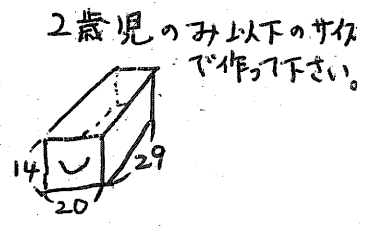 2歳児のみ以下のサイズ
で作って下さい。
14
29
20